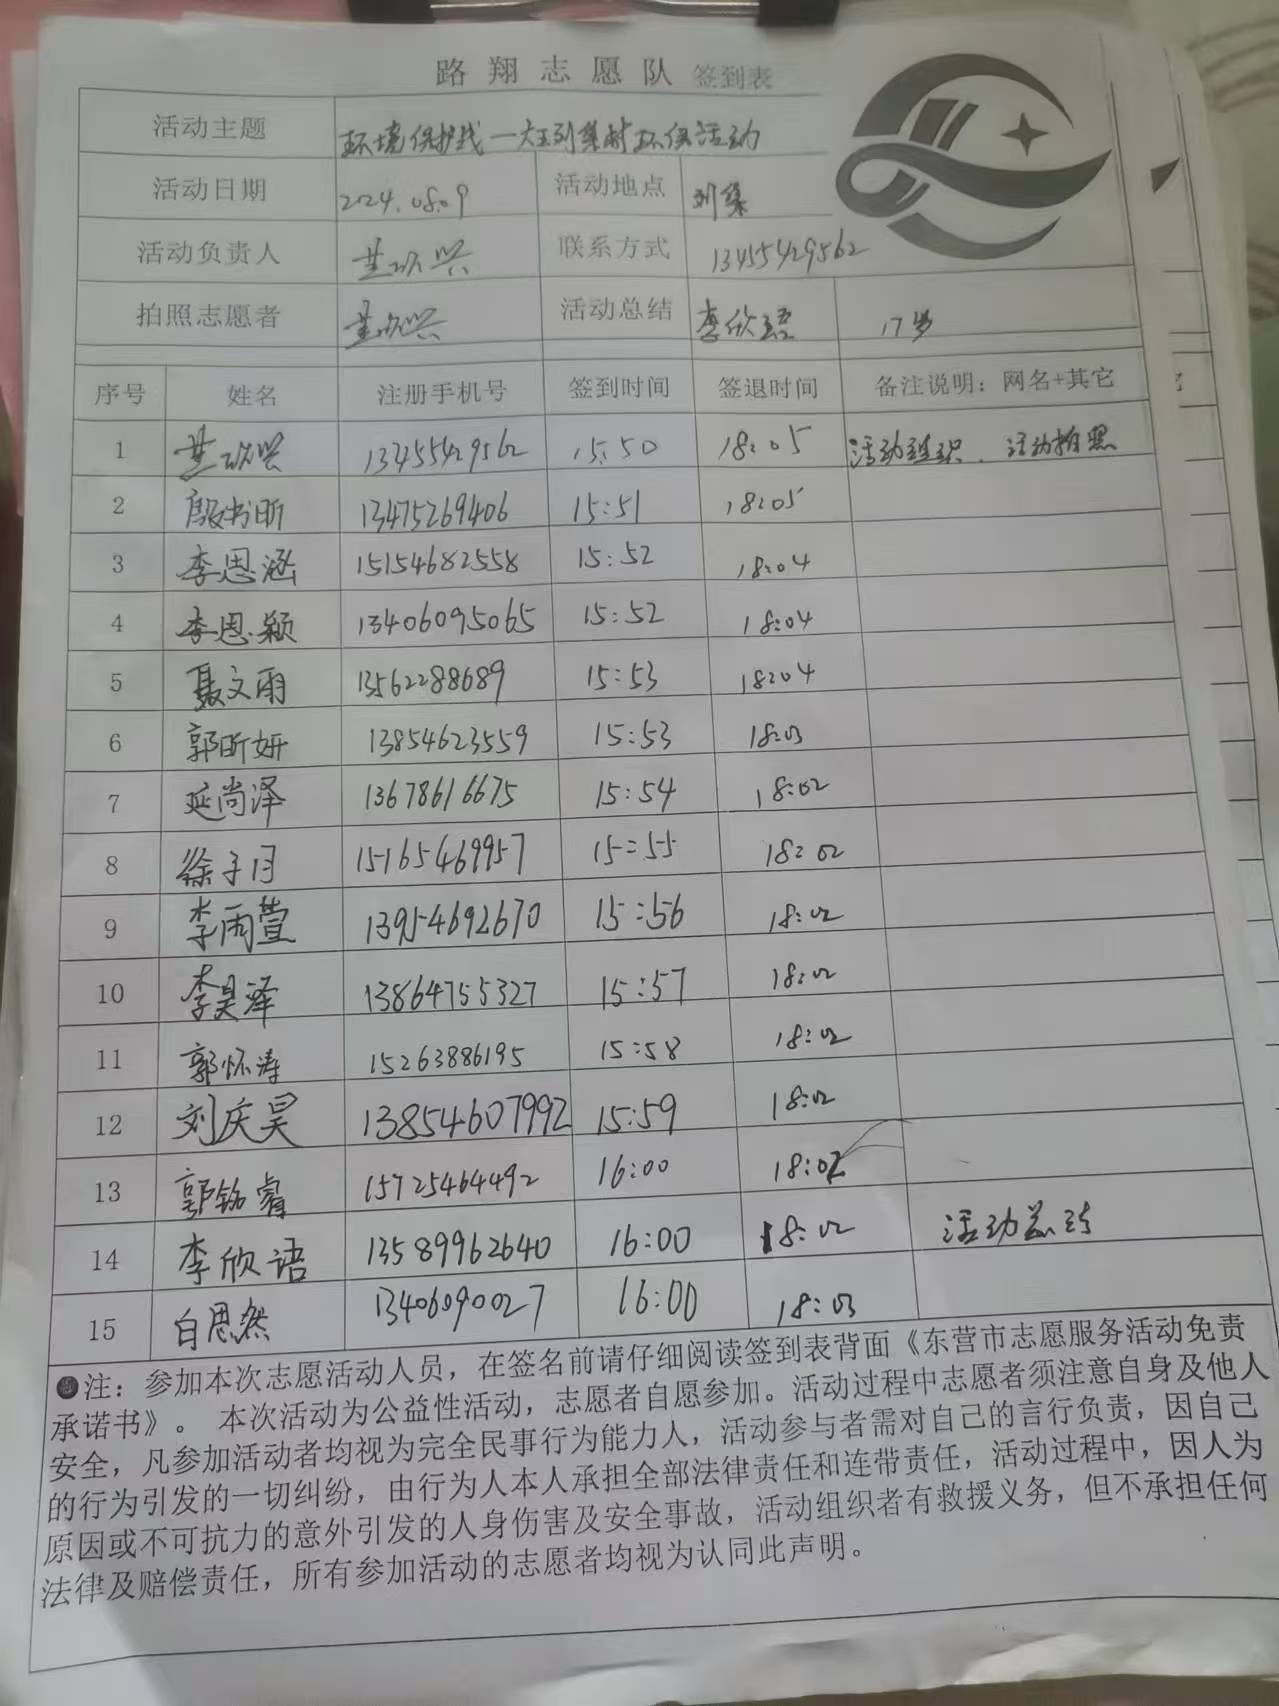 路翔志愿队 签到表
活动主题 环境保护我一大王刘集村环保活动
活动日期 2024.08.09 活动地点 刘集
活动负责人 联系方式 13455429562
拍照志愿者 活动总结 李欣语 17岁
序号 姓名 注册手机号 签到时间 签退时间 备注说明：网名+其它
1 13455429562 15:50 18:05 活动组织、活动拍照
2 殷书昕 13475269406 15:51 18:05
3 李恩涵 15154682558 15:52 18:04
4 李恩颖 13406095065 15:52 18:04
5 聂文雨 13562288689 15:53 18:04
6 郭昕妍 13854623559 15:53 18:03
7 延尚泽 13678616675 15:54 18:02
8 徐子月 15165469957 15:55 18:02
9 李雨萱 13954692670 15:56 18:02
10 李昊泽 13864755327 15:57 18:02
11 郭怀涛 15263886195 15:58 18:02
12 刘庆昊 13854607992 15:59 18:02
13 郭铭睿 15725464492 16:00 18:02
14 李欣语 13589962640 16:00 18:02 活动总结
15 白思然 13406090027 16:00 18:03
●注：参加本次志愿活动人员，在签名前请仔细阅读签到表背面《东营市志愿服务活动免责
承诺书》。 本次活动为公益性活动，志愿者自愿参加。活动过程中志愿者须注意自身及他人
安全，凡参加活动者均视为完全民事行为能力人，活动参与者需对自己的言行负责，因自己
的行为引发的一切纠纷，由行为人本人承担全部法律责任和连带责任，活动过程中，因人为
原因或不可抗力的意外引发的人身伤害及安全事故，活动组织者有救援义务，但不承担任何
法律及赔偿责任，所有参加活动的志愿者均视为认同此声明。